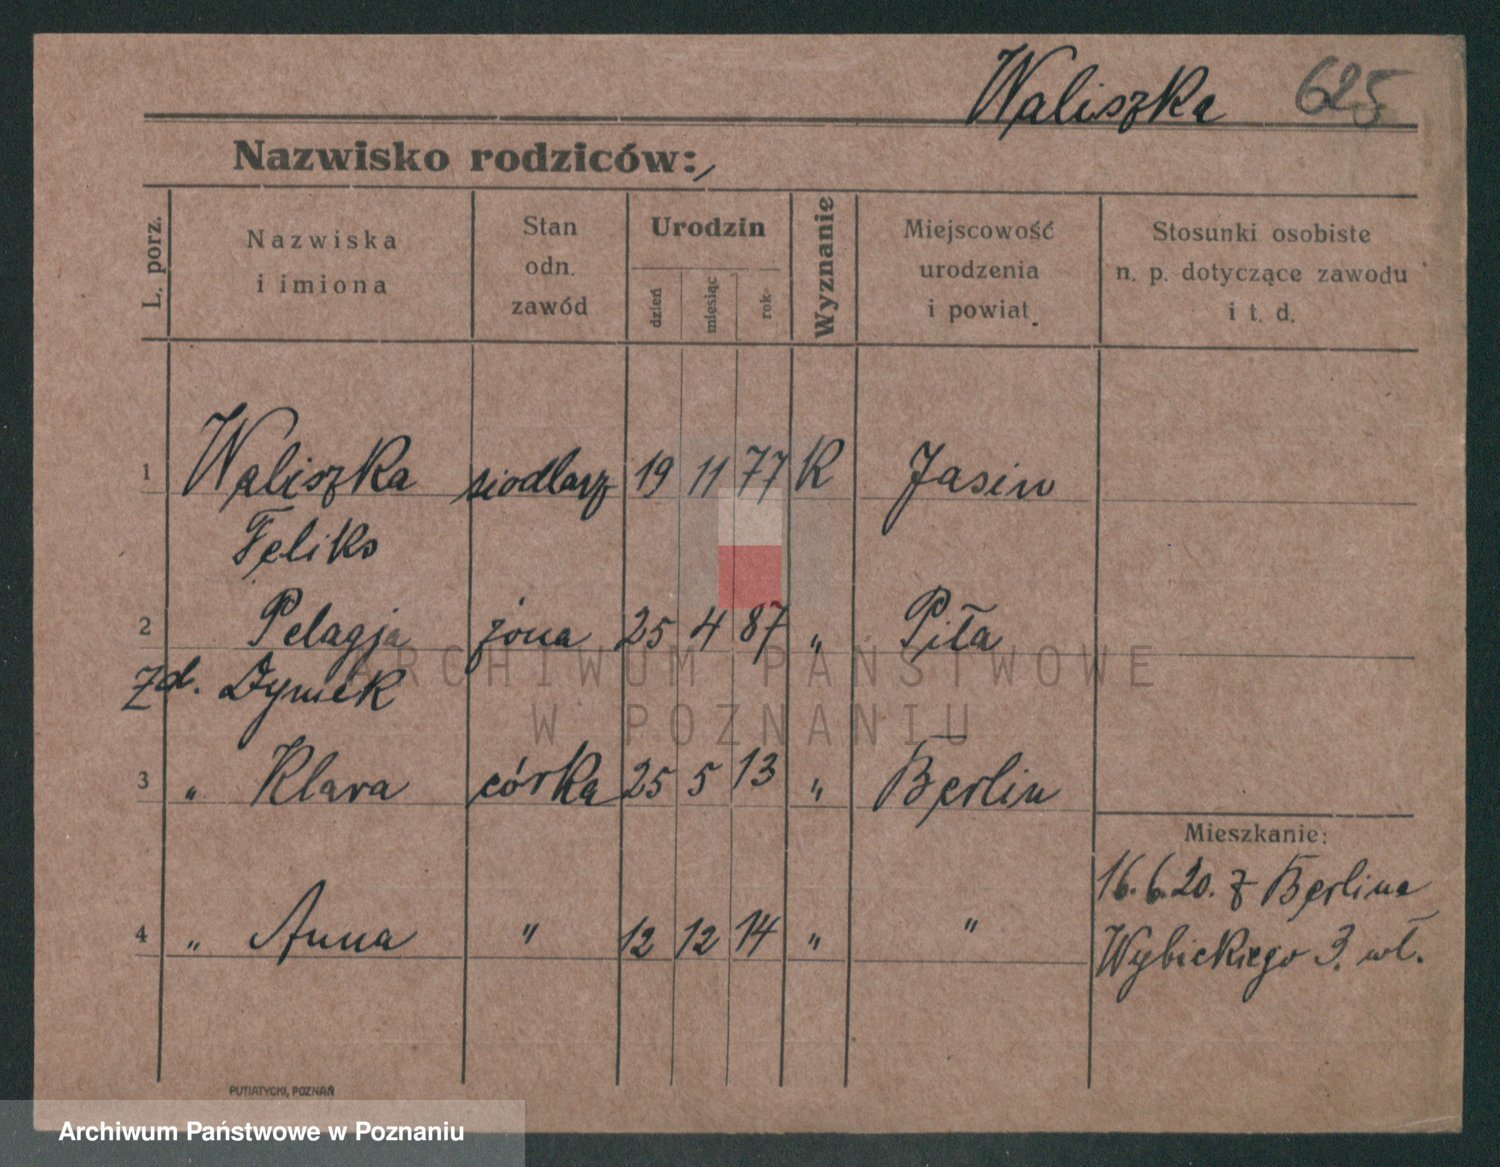 Waliszka 625
Nazwisko rodziców:
L. porz.
Nazwiska
i imiona
Stan
odn.
zawód
Urodzin
dzień
miesiąc
rok
Wyznanie
Miejscowość
urodzenia
i powiat.
Stosunki osobiste
n. p. dotyczące zawodu
i t. d.
1 Waliszka siodlarz 19 11 77 K Jasin
Feliks
2 Pelagja żona 25 4 87 " Piła
zd. Dymek
3 " Klara córka 25 5 13 " Berlin
Mieszkanie:
16.6.20. z Berlina
4 " Anna " 12 12 14 " "
Wybickiego 3. wł.
PUTIATYCKI, POZNAŃ
ARCHIWUM PAŃSTWOWE
W POZNANIU
Archiwum Państwowe w Poznaniu